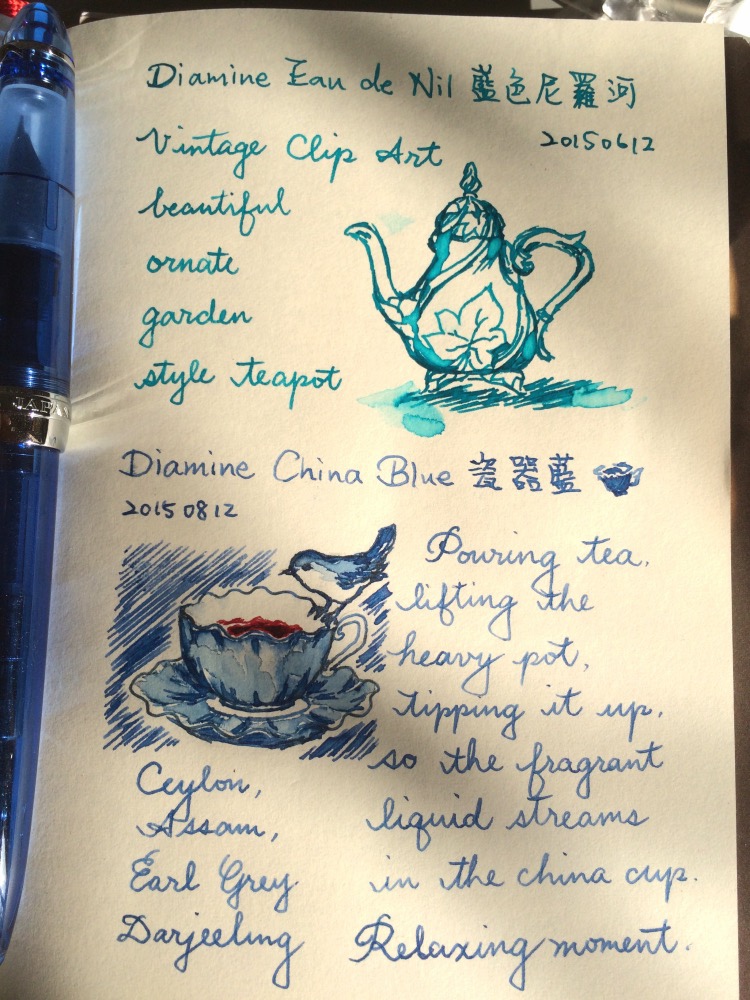 Diamine Eau de Nil 藍色尼羅河
20150612
Vintage Clip Art
beautiful
ornate
garden
style teapot
Diamine China Blue 瓷器藍
20150812
Pouring tea,
lifting the
heavy pot,
tipping it up,
so the fragrant
liquid streams
in the china cup.
Relaxing moment.
Ceylon,
Assam,
Earl Grey
Darjeeling
JAPAN